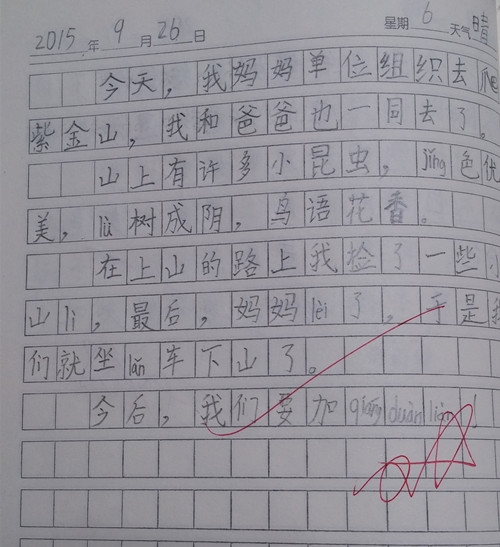 2015.年 9 月 26 日 星期 6 天气 晴
今天，我妈妈单位组织去爬
紫金山，我和爸爸也一同去了。
山上有许多小昆虫，jǐng色优
美，lǜ树成阴，鸟语花香。
在上山的路上我捡了一些小
山lì，最后，妈妈lèi了，于是我
们就坐lǎn车下山了。
今后，我们要加qiáng duàn liàn！